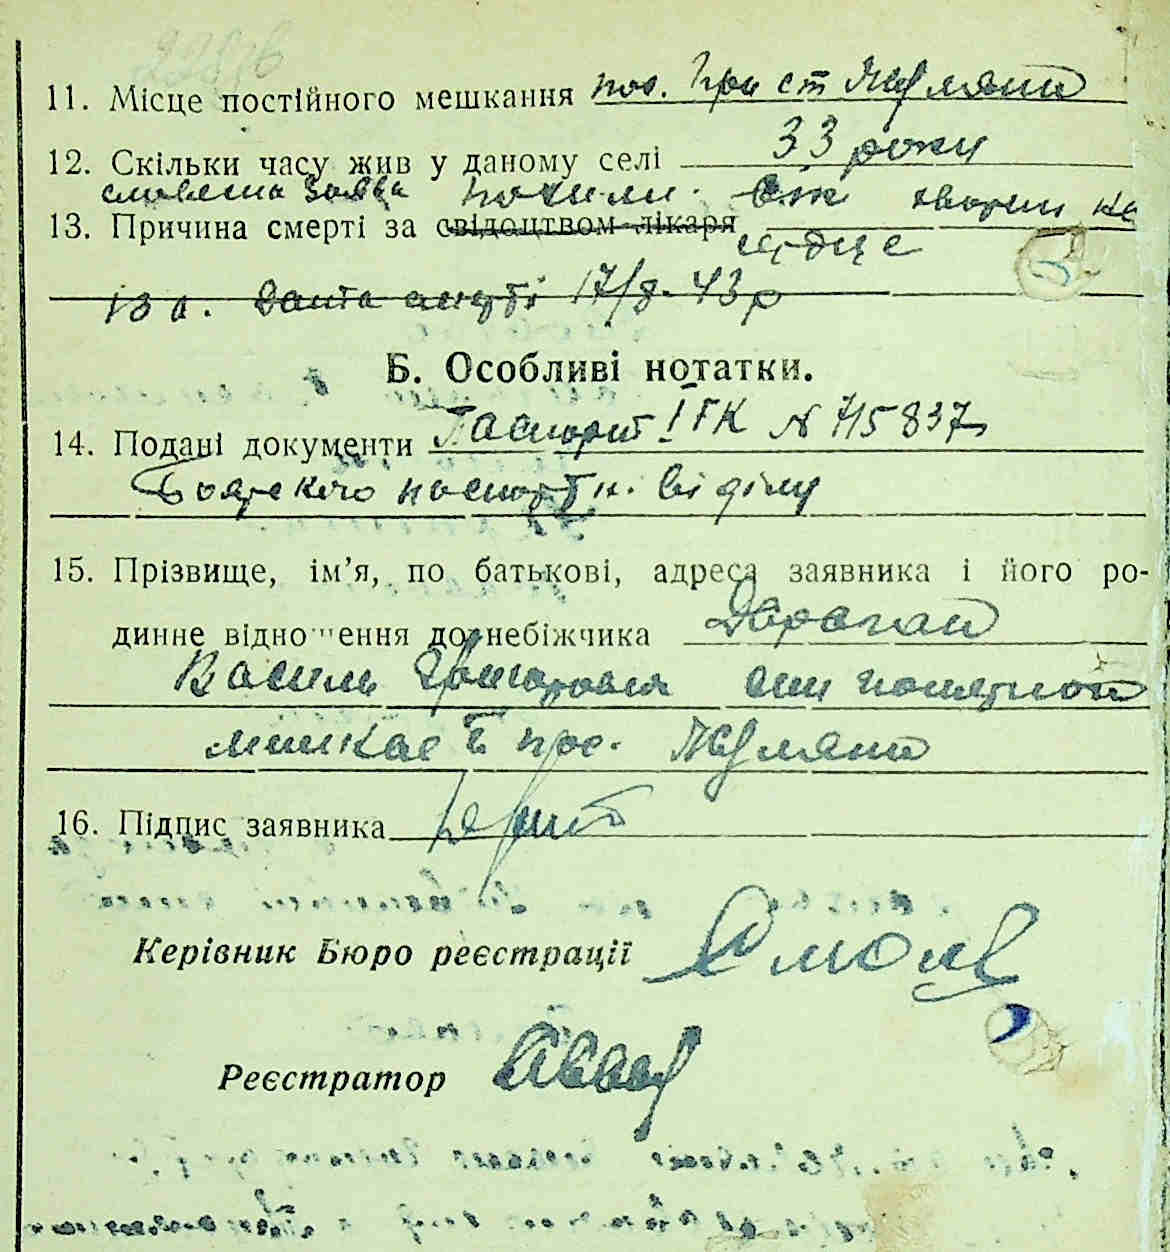 11. Місце постійного мешкання пос. при ст Жуляни
12. Скільки часу жив у даному селі 33 роки
словесна заява хворий на
13. Причина смерті за свідоцтвом лікаря
серце
13 а. Дата смерті 17/8-43 р
Б. Особливі нотатки.
14. Подані документи Паспорт ІГК № 715837
Боярского паспортн. відділу
15. Прізвище, ім’я, по батькові, адреса заявника і його ро-
динне відношення до небіжчика Дараган
Василь Григорович син
мешкає в пос. Жуляни
16. Підпис заявника
Керівник Бюро реєстрації
Реєстратор